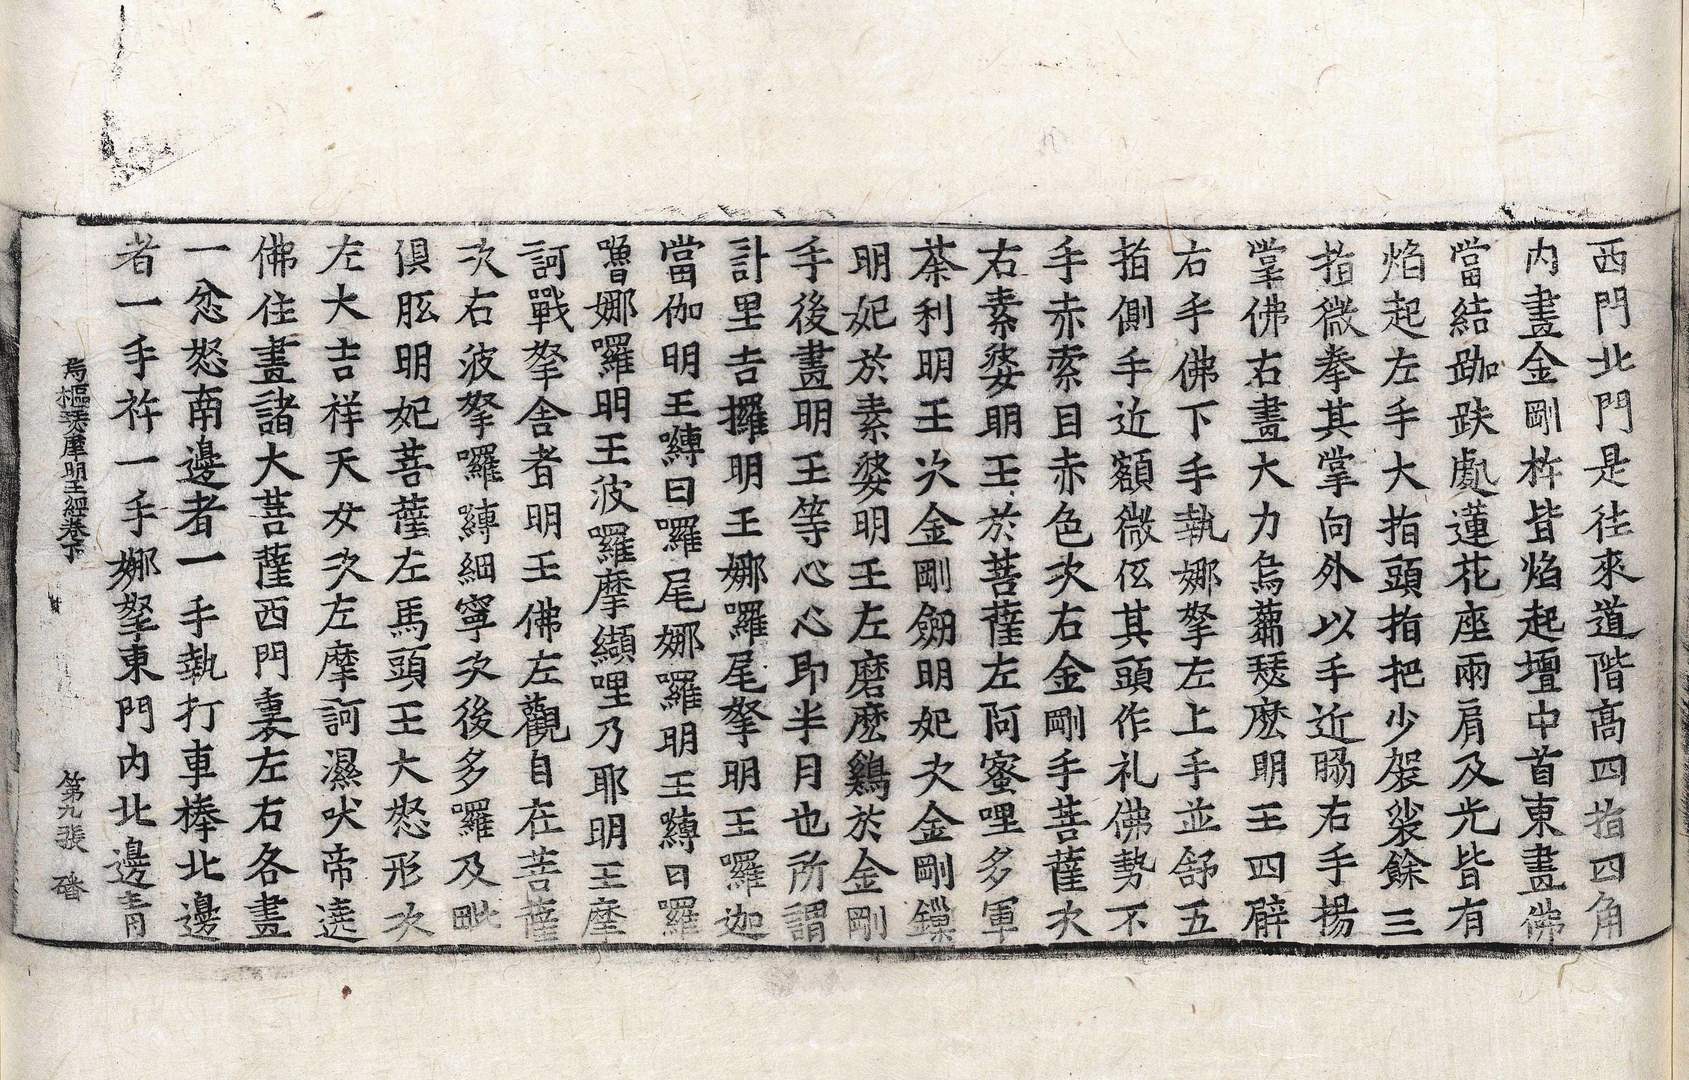 西門北門是往來道階高四指四角
內畫金剛杵皆焰起壇中首東畫佛
當結跏趺處蓮花座兩肩及光皆有
焰起左手大指頭指把少袈裟餘三
指微拳其掌向外以手近腸右手揚
掌佛右畫大力烏蒭瑟麽明王四臂
右手佛下手執娜拏左上手並舒五
指側手近額微低其頭作礼佛勢下
手赤索目赤色次右金剛手菩薩次
右素婆明王於菩薩左阿蜜哩多軍
荼利明王次金剛劒明妃次金剛鏁
明妃於素婆明王左磨麽鷄於金剛
手後畫明王等心心即半月也所謂
計里吉攞明王娜羅尾拏明王囉迦
當伽明王嚩曰囉尾娜囉明王嚩曰羅
嚕娜囉明王波羅摩纈哩乃耶明王摩
訶戰拏舍者明王佛左觀自在菩薩
次右波拏囉嚩細寧次後多囉及毗
俱胝明妃菩薩左馬頭王大怒形次
左大吉祥天女次左摩訶濕吠帝遶
佛住畫諸大菩薩西門裏左右各畫
一忿怒南邊者一手執打車棒北邊
者一手祚一手娜拏東門內北邊青
烏樞瑟摩明王經卷下　第九張　磻